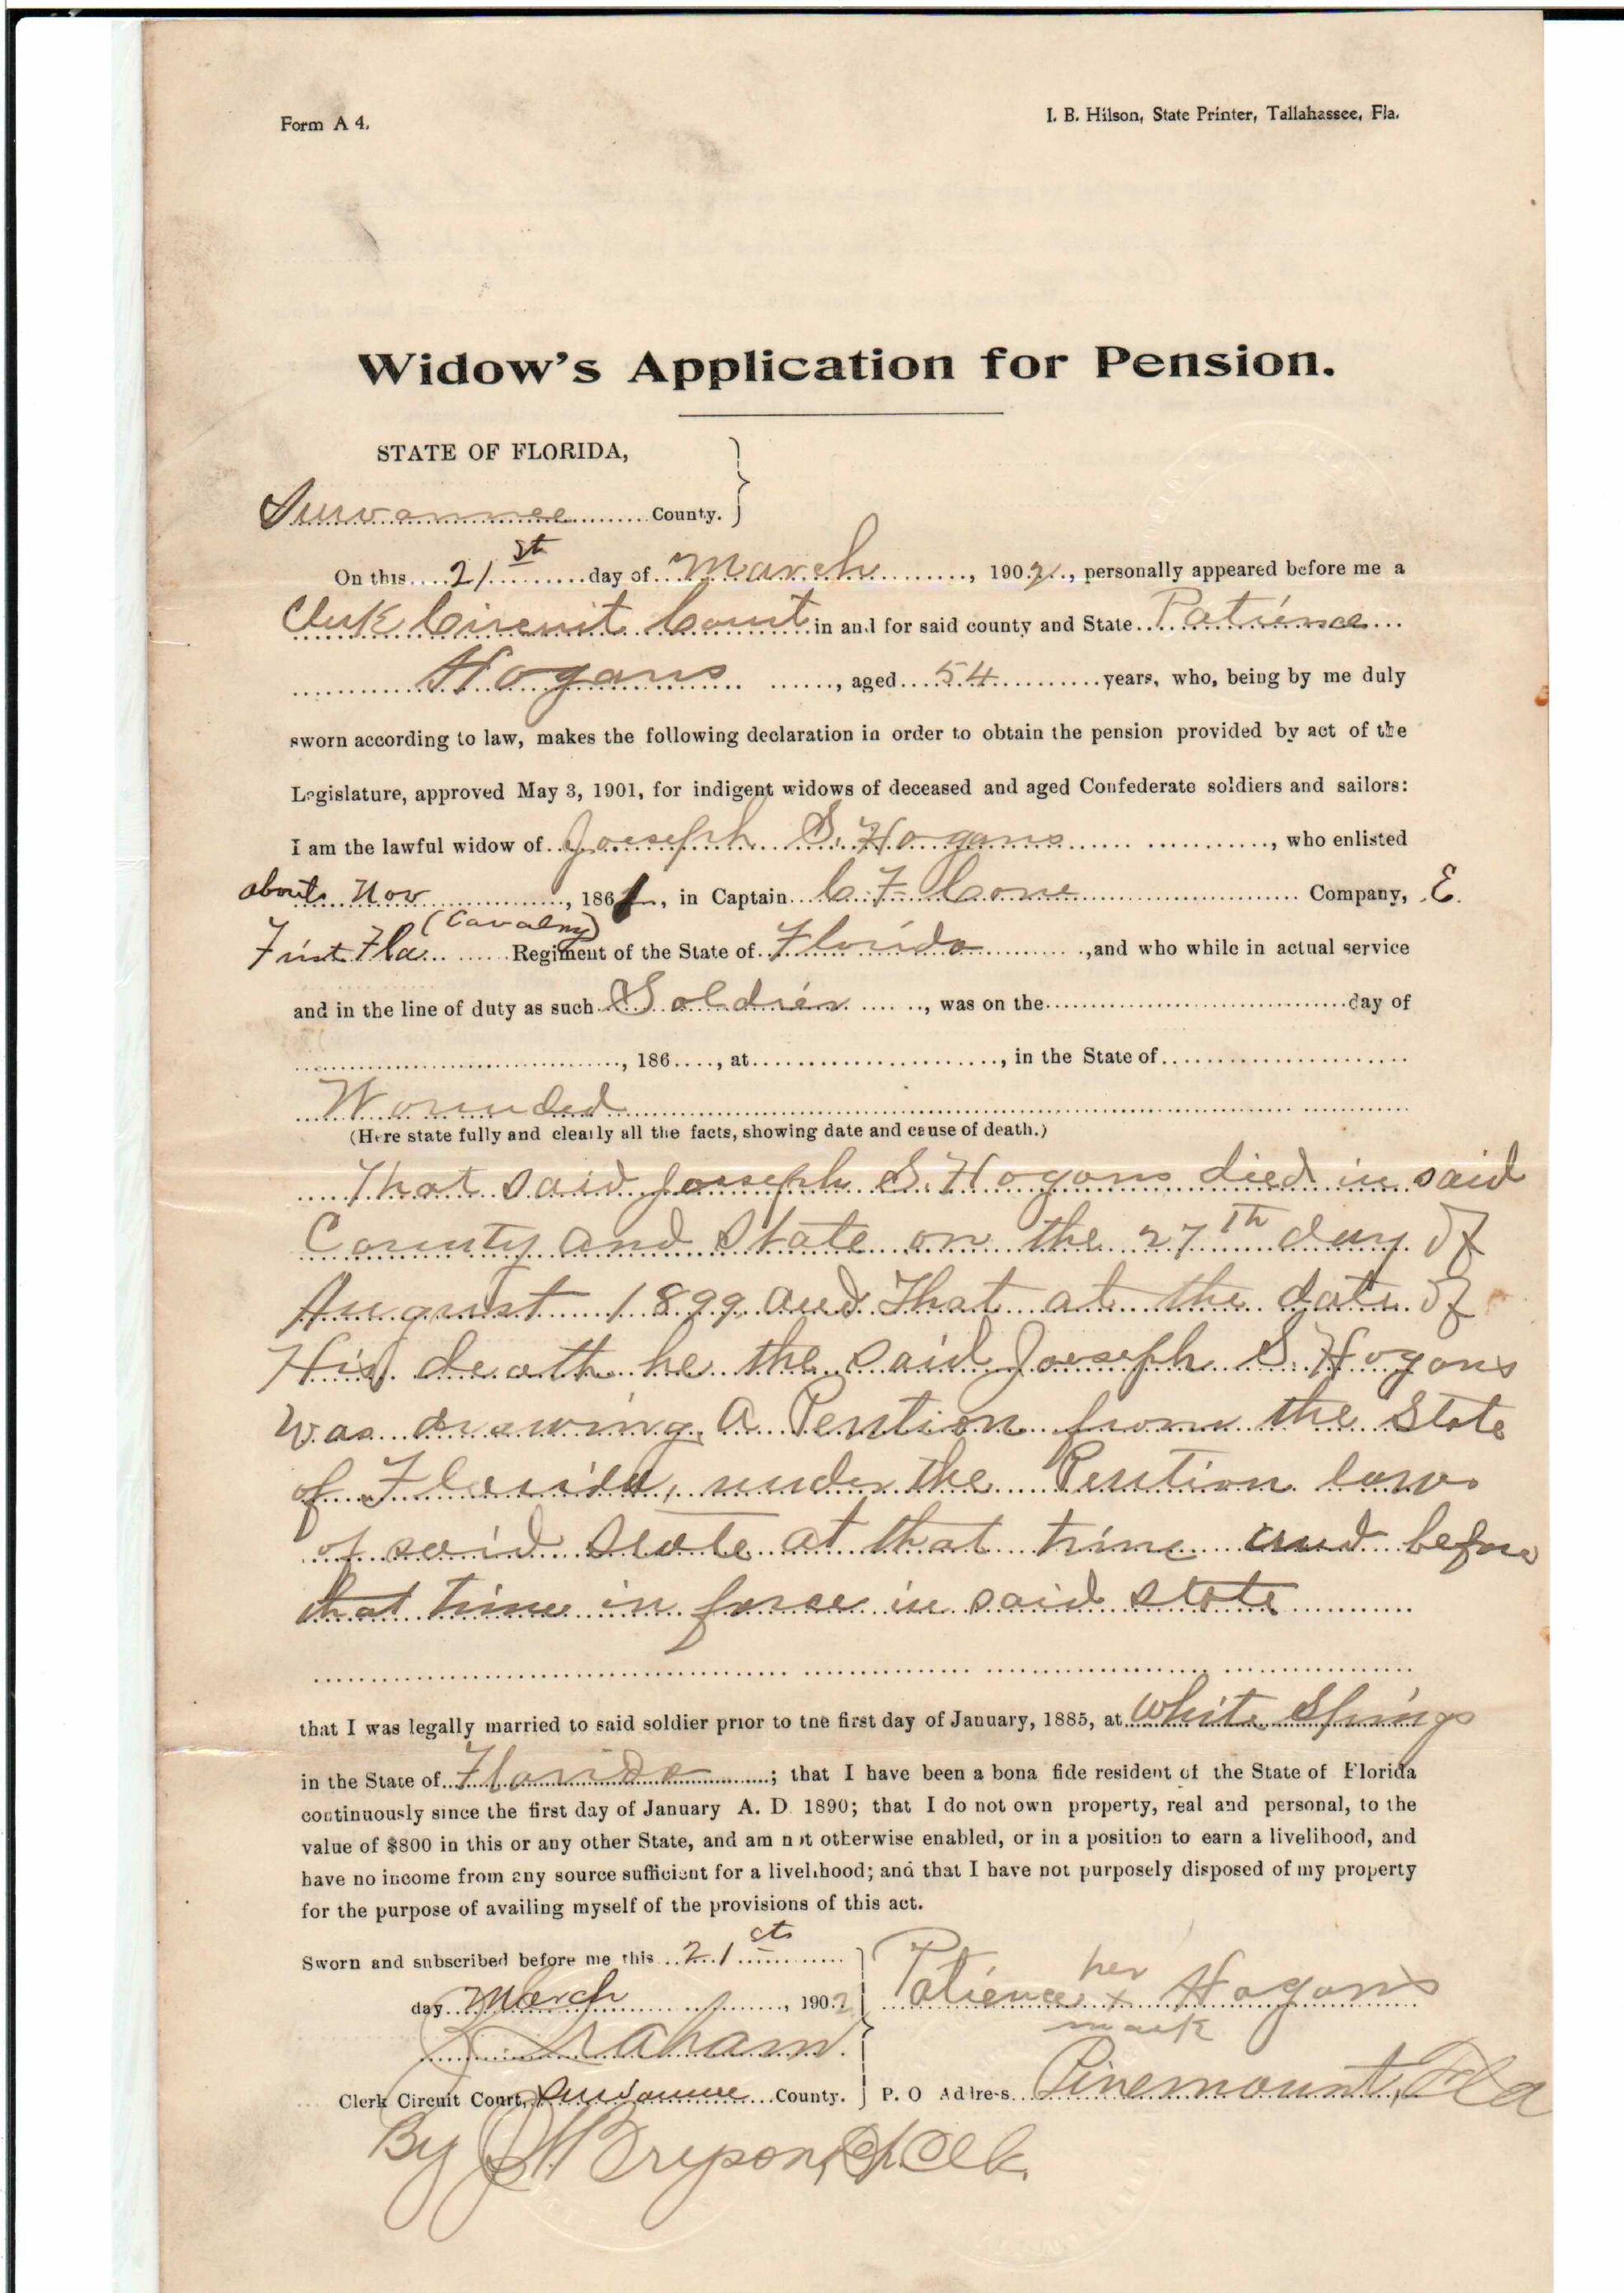 Form A 4.
I. B. Hilson, State Printer, Tallahassee, Fla.
Widow's Application for Pension.
STATE OF FLORIDA,
Suwannee County.
On this 21st day of March, 1902, personally appeared before me a
Clerk Circuit Court in and for said county and State Patience
Hogans, aged 54 years, who, being by me duly
sworn according to law, makes the following declaration in order to obtain the pension provided by act of the
Legislature, approved May 3, 1901, for indigent widows of deceased and aged Confederate soldiers and sailors:
I am the lawful widow of Joeseph S. Hogans, who enlisted
about Nov, 1861, in Captain C. F. Cone Company, E.
(Cavalry)
First Fla Regiment of the State of Florida, and who while in actual service
and in the line of duty as such Soldier, was on the day of
, 186, at, in the State of
Wounded
(Here state fully and clearly all the facts, showing date and cause of death.)
That said Joeseph S. Hogans died in said
County and State on the 27th day of
August 1899 and That at the date of
His death he the said Joeseph S. Hogans
was drawing A Pention from the State
of Florida, under the Pention laws
of said State at that time and before
that time in force in said state
that I was legally married to said soldier prior to the first day of January, 1885, at White Springs
in the State of Florida; that I have been a bona fide resident of the State of Florida
continuously since the first day of January A. D. 1890; that I do not own property, real and personal, to the
value of $800 in this or any other State, and am not otherwise enabled, or in a position to earn a livelihood, and
have no income from any source sufficient for a livelihood; and that I have not purposely disposed of my property
for the purpose of availing myself of the provisions of this act.
Sworn and subscribed before me this 21st
day March, 1902
Patience her x mark Hogans
Graham
Clerk Circuit Court, Suwannee County.
P. O Address Pinemount, Fla
By Bryson, Clk.